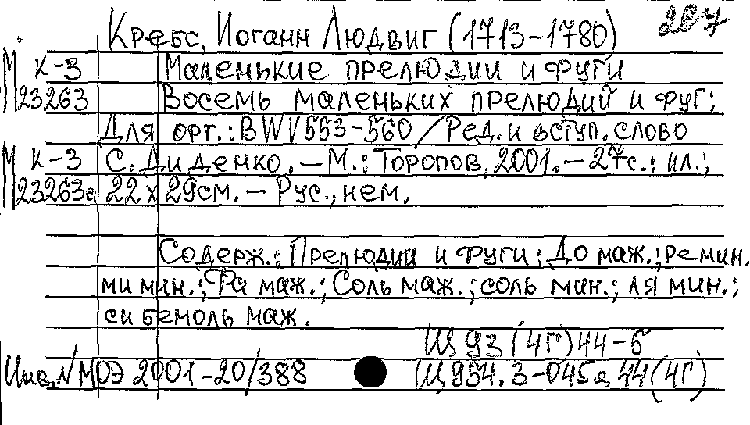 Кребс, Иоганн Людвиг (1713-1780) 227
М К-3 Маленькие прелюдии и фуги
23263 Восемь маленьких прелюдий и фуг:
Для орг.: BWV 553-560 / Ред. и вступ. слово
М К-3 С. Диденко. – М.: Торопов, 2001. – 27с.: ил.;
23263а 22 х 29см. – Рус., нем.
Содерж.: Прелюдии и фуги: До маж.; ре мин.
ми мин.; Фа маж.; Соль маж.; соль мин.; ля мин.;
си бемоль маж.
Щ 93(4Г)44-6
Инв. N МОЭ 2001-20/388 (Щ 954.3-045я44(4Г)